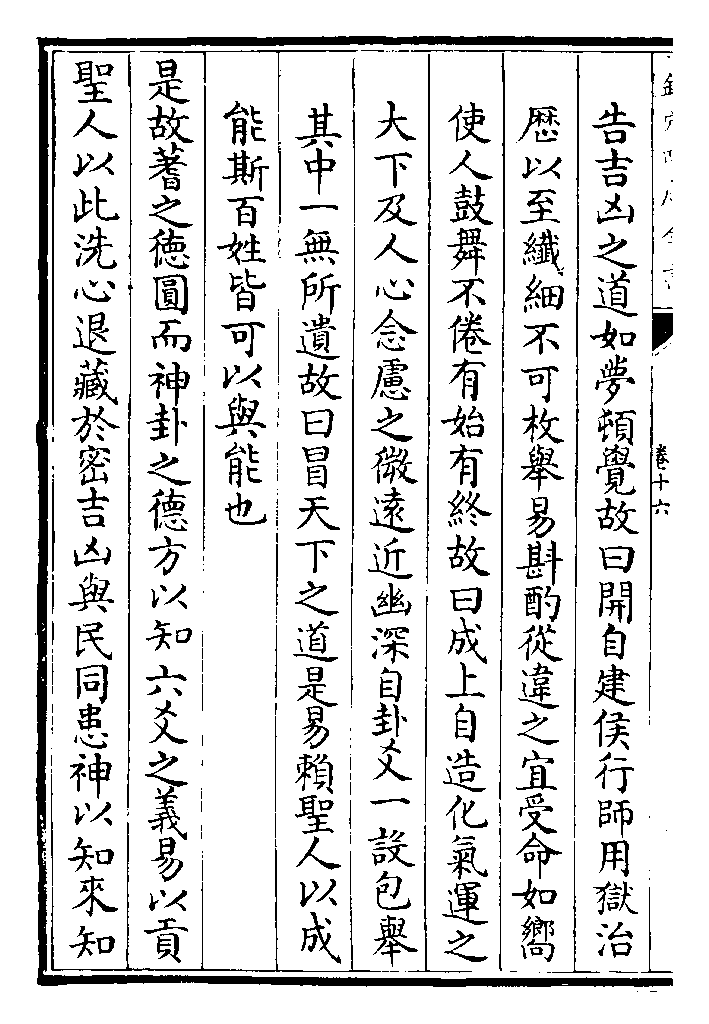 欽定四庫全書
卷十六
告吉凶之道如夢頓覺故曰開自建侯行師用獄治
厯以至纎細不可枚舉易斟酌從違之宜受命如嚮
使人鼓舞不倦有始有終故曰成上自造化氣運之
大下及人心念慮之微遠近幽深自卦爻一設包舉
其中一無所遺故曰冒天下之道是易賴聖人以成
能斯百姓皆可以與能也
是故蓍之德圓而神卦之德方以知六爻之義易以貢
聖人以此洗心退藏於密吉凶與民同患神以知來知